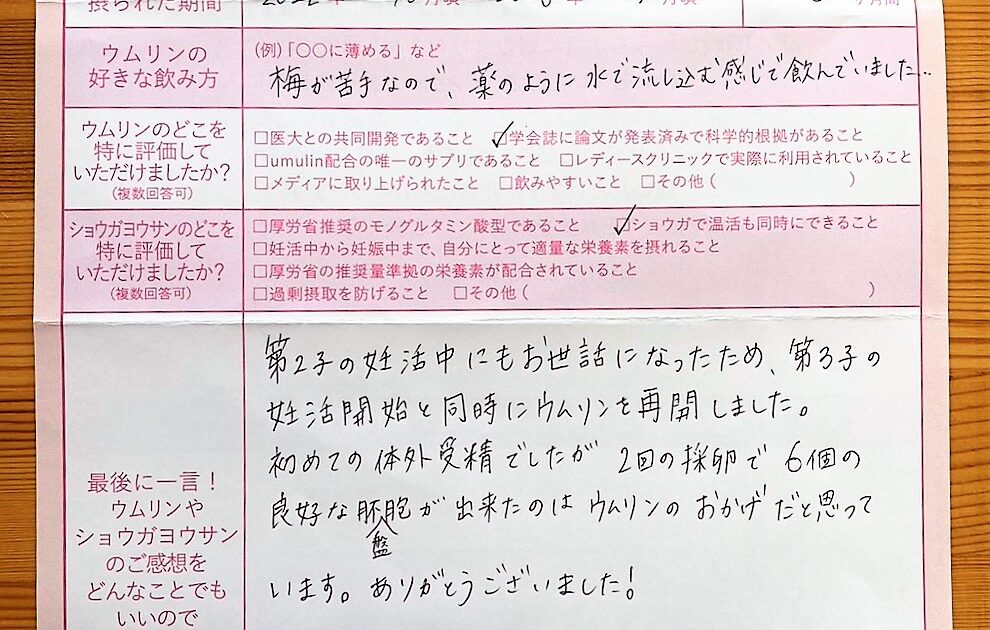 摂られた期間
ウムリンの
好きな飲み方
(例)「〇〇に薄める」など
梅が苦手なので、薬のように水で流し込む感じで飲んでいました…
ウムリンのどこを
特に評価して
いただけましたか?
(複数回答可)
□医大との共同開発であること ☑学会誌に論文が発表済みで科学的根拠があること
□umulin配合の唯一のサプリであること □レディースクリニックで実際に利用されていること
□メディアに取り上げられたこと □飲みやすいこと □その他( )
ショウガヨウサンのどこを
特に評価して
いただけましたか?
(複数回答可)
□厚労省推奨のモノグルタミン酸型であること ☑ショウガで温活も同時にできること
□妊活中から妊娠中まで、自分にとって適量な栄養素を摂れること
□厚労省の推奨量準拠の栄養素が配合されていること
□過剰摂取を防げること □その他( )
最後に一言!
ウムリンや
ショウガヨウサン
のご感想を
どんなことでも
いいので
第2子の妊活中にもお世話になったため、第3子の
妊活開始と同時にウムリンを再開しました。
初めての体外受精でしたが 2回の採卵で 6個の
良好な胚盤胞が出来たのはウムリンのおかげだと思って
います。ありがとうございました!